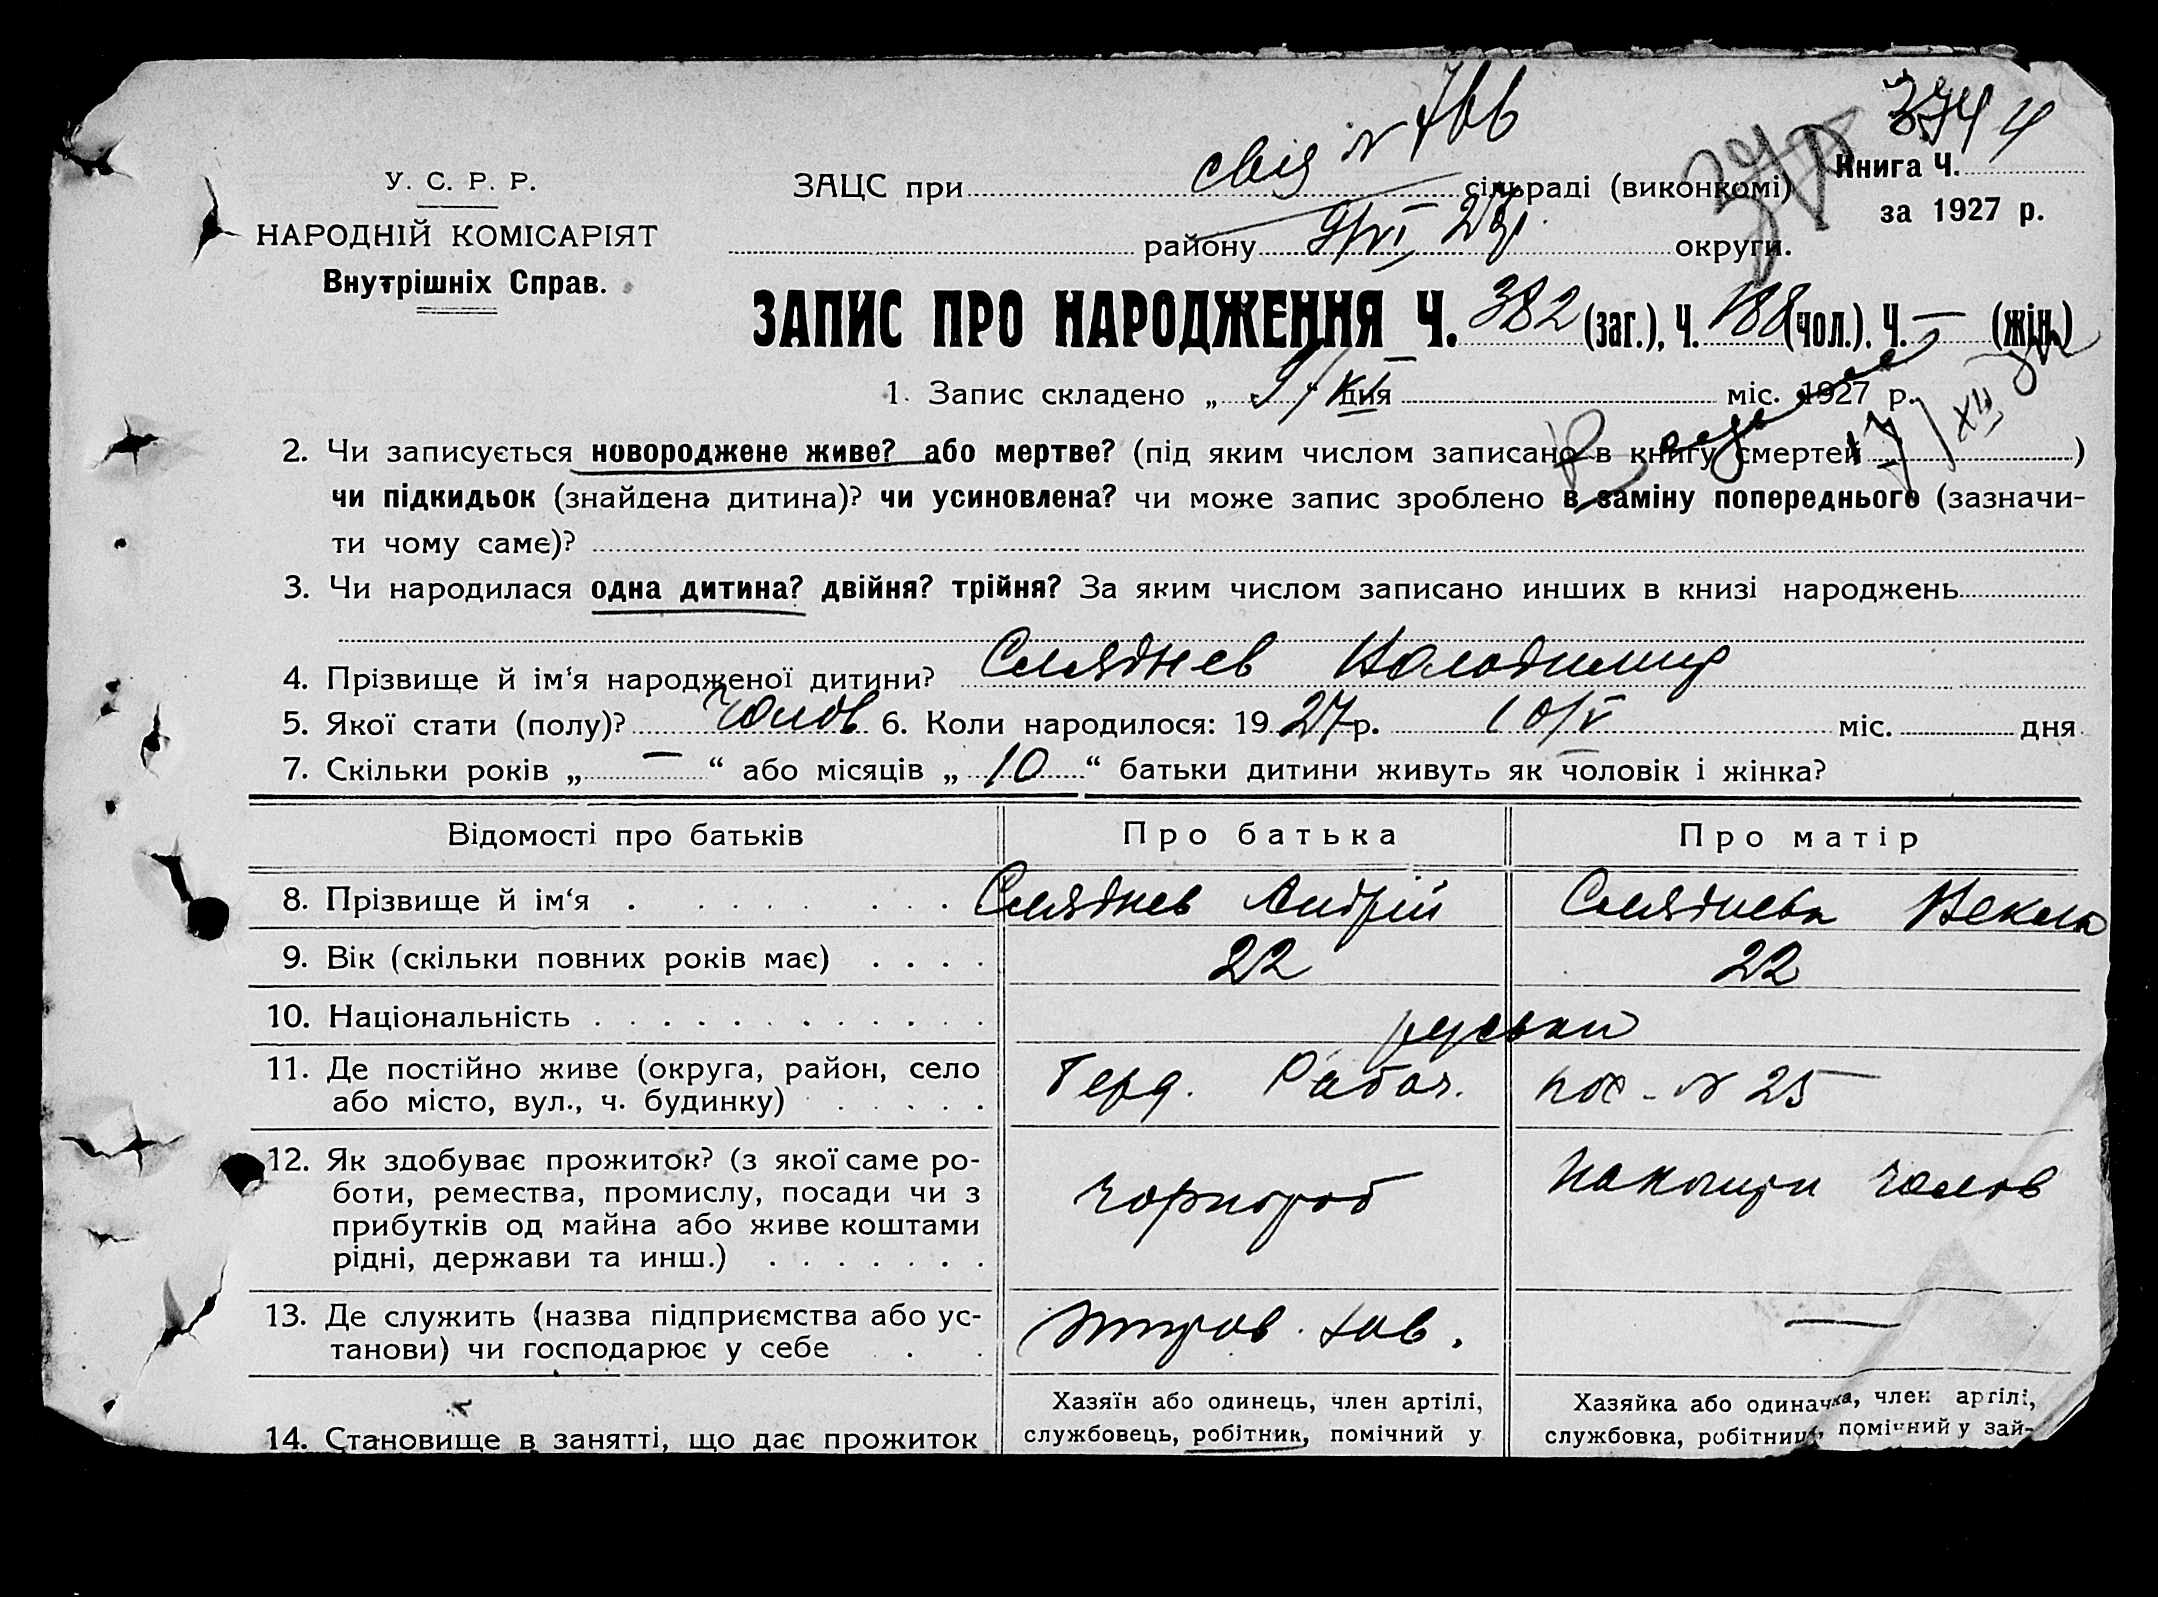 свід № 766
3744
У. С. Р. Р.
НАРОДНІЙ КОМІСАРІЯТ
Внутрішніх Справ.
ЗАЦС при сільраді (виконкомі)
Книга Ч.
за 1927 р.
району 9/VI 27 р. округи.
ЗАПИС ПРО НАРОДЖЕННЯ Ч. 382 (заг.), Ч. 188 (чол.). Ч. — (жін.)
1. Запис складено „ 9/VI дня міс. 1927 р.
17/XII
2. Чи записується новороджене живе? або мертве? (під яким числом записано в книгу смертей )
чи підкидьок (знайдена дитина)? чи усиновлена? чи може запис зроблено в заміну попереднього (зазначи-
ти чому саме)?
3. Чи народилася одна дитина? двійня? трійня? За яким числом записано инших в книзі народжень
4. Прізвище й ім‘я народженої дитини? Сляднев Володимир
5. Якої стати (полу)? чолов 6. Коли народилося: 1927 р. 10/V міс. дня
7. Скільки років „ — “ або місяців „ 10 “ батьки дитини живуть як чоловік і жінка?
Відомості про батьків Про батька Про матір
8. Прізвище й ім‘я Сляднев Андрій Сляднева Текля
9. Вік (скільки повних років має) 22 22
10. Національність руськи
11. Де постійно живе (округа, район, село Рабоч. № 25
або місто, вул., ч. будинку)
12. Як здобуває прожиток? (з якої саме ро-
боти, ремества, промислу, посади чи з чорнороб на кошти чолов
прибутків од майна або живе коштами
рідні, держави та инш.)
13. Де служить (назва підприємства або ус- зав. —
танови) чи господарює у себе
14. Становище в занятті, що дає прожиток
Хазяїн або одинець, член артілі,
службовець, робітник, помічний у
Хазяйка або одиначка, член артілі,
службовка, робітниця, помічний у зай-